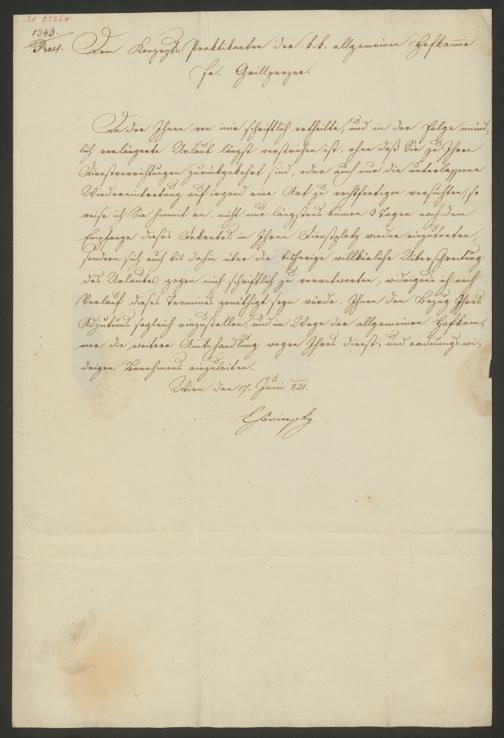 1243.
Praes.
Dem Konzepts Praktikanten der k.k. allgemeinen Hofkammer
Fr. Grillparzer.
Da der Ihnen von mir schriftlich ertheilte, und in der Folge münd,
lich verlängerte Urlaub längst verstrichen ist, ohne daß Sie zu Ihren
Dienstverrichtungen zurückgekehrt sind, oder auch nur die unterlassene
Wiedereintretung auf irgend eine Art zu rechtfertigen versuchten, so
weise ich Sie hiemit an, nicht nur längstens binnen 3 Tagen nach dem
Empfange dieses Dekretes in Ihren Dienstplatz wieder einzutreten,
sondern sich auch bis dahin über die bisherige willkürliche Überschreitung
des Urlaubes gegen mich schriftlich zu verantworten, widrigens ich nach
Verlauf dieses Termines genöthigt seyn würde, Ihnen den Bezug Ihres
Adjutums sogleich einzustellen, und im Wege der allgemeinen Hofkam,
mer die weitere Amtshandlung wegen Ihres dienst- und ordnungswi,
drigen Benehmens einzuleiten.
Wien den 17. Juni 821.